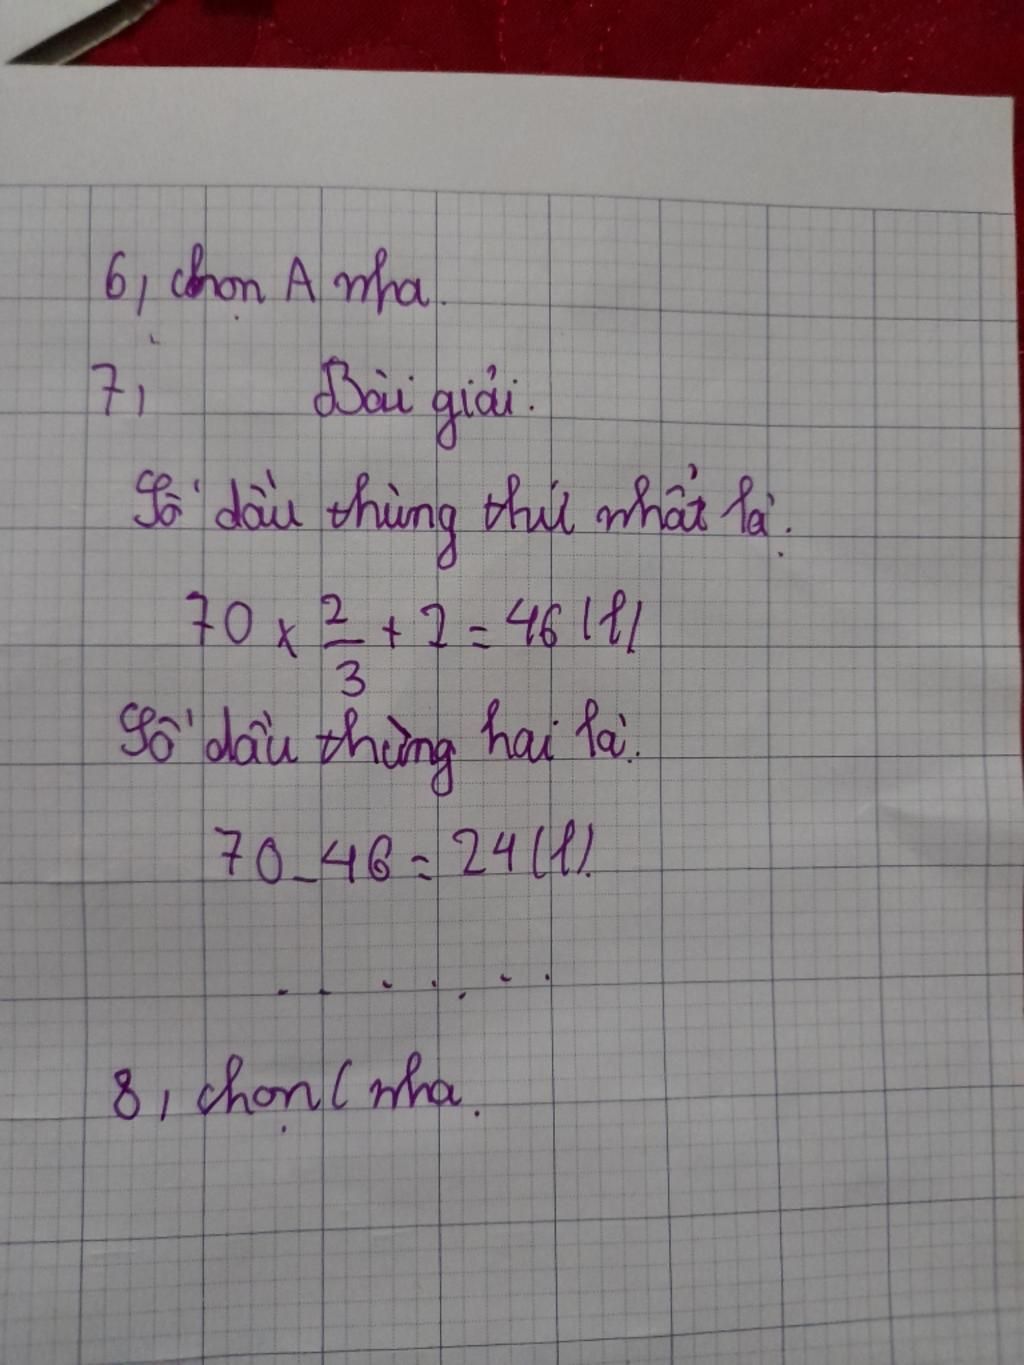 6, chọn A nha.
7, Bài giải.
Số dầu thùng thứ nhất là.
70 x 2/3 + 2 = 46 (l)
Số dầu thùng hai là.
70 - 46 = 24 (l).
.......
8, chọn C nha.